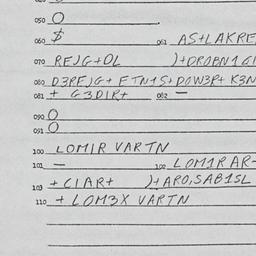 050 O
060 $ 061 AS+LAKRE
070 REJG+OL )+DROBN1G1
080 D3REJG+ FTN1S+D0W3R+ K3N
081 + G3DIR+ 082 —
090 O
091 O
100 LOMIR VARTN
101 — 102 LOM1R AR-
103 + CIAR+ )+ARO,SAB1SL
110 + LOM3X VARTN